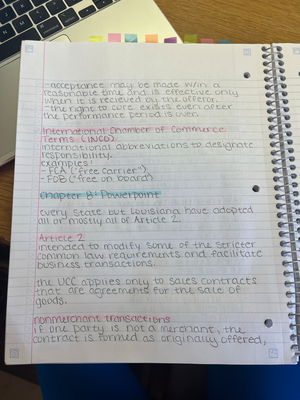 -acceptance may be made w/in a
reasonable time and is effective only
when it is recieved by the offeror.
-the right to cure exists even after
the performance period is over.
International Chamber of Commerce
Terms (INCO)
international abbreviations to designate
responsibility.
examples:
- FCA ("free carrier")
- FOB ("free on board")
Chapter 8: Powerpoint
every state but Louisiana have adopted
all or mostly all of Article 2.
Article 2
intended to modify some of the stricter
common law requirements and facilitate
business transactions.
the UCC applies only to sales contracts
that are agreements for the sale of
goods.
nonmerchant transactions
if one party is not a merchant, the
contract is formed as originally offered,